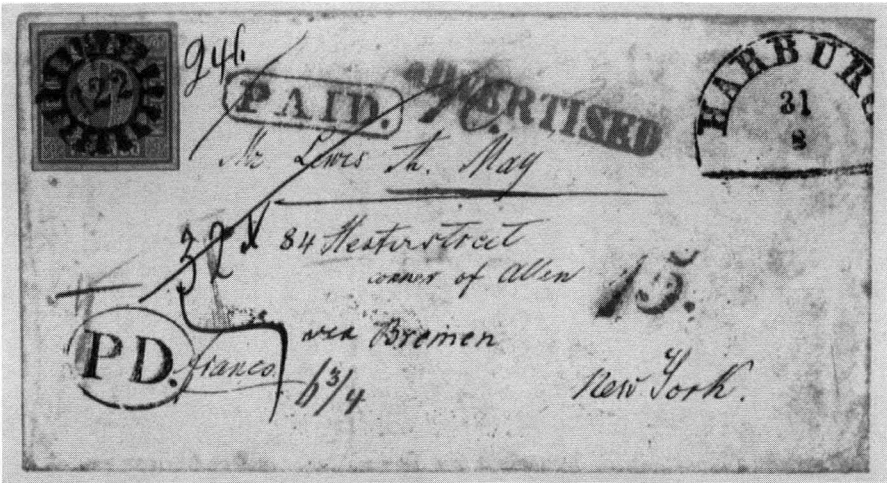 122
946
PAID.
ADVERTISED
HARBURG
31
8
Mr Lewis M. May
32 x
84 Hesterstreet
corner of Allen
15.
PD.
franco
via Bremen
6 3/4
New York.